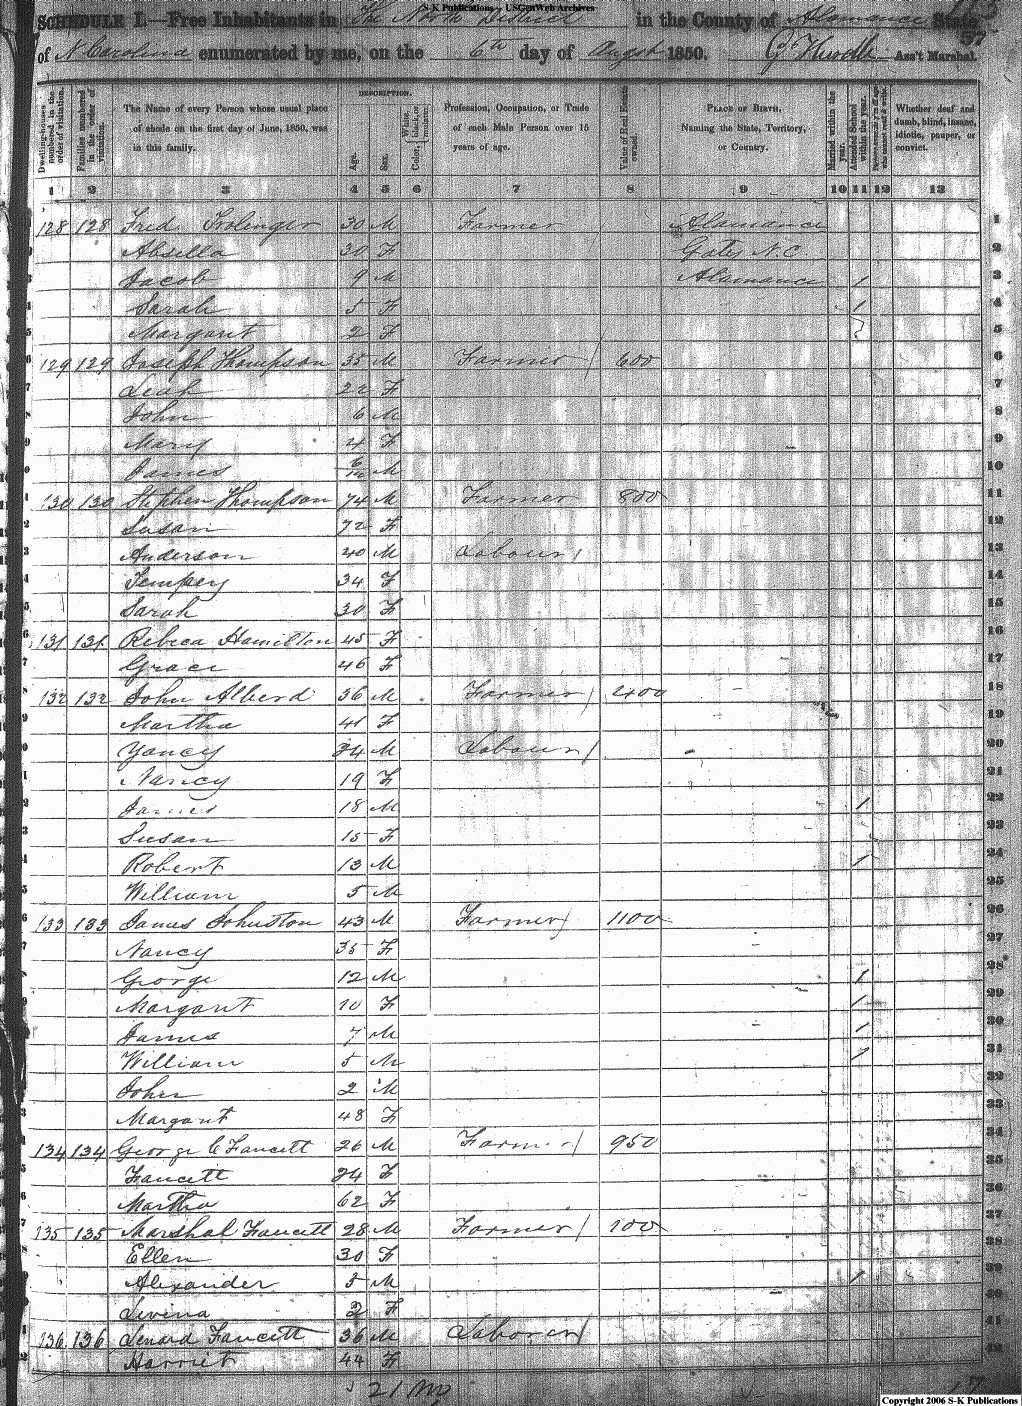 S-K Publications - USGenWeb Archives
SCHEDULE I.—Free Inhabitants in The North District in the County of Alamance State
of N Carolina enumerated by me, on the 6th day of Augst 1850. Ass't Marshal.
Dwelling-houses numbered in the order of visitation.
Families numbered in the order of visitation.
The Name of every Person whose usual place of abode on the first day of June, 1850, was in this family.
DESCRIPTION.
Age.
Sex.
Color, White, black, or mulatto.
Profession, Occupation, or Trade of each Male Person over 15 years of age.
Value of Real Estate owned
PLACE OF BIRTH, Naming the State, Territory, or Country.
Married within the year.
Attended School within the year.
Whether deaf and dumb, blind, insane, idiotic, pauper, or convict.
1 2 3 4 5 6 7 8 9 10 11 12 13
128 128 Fred Trolinger 30 M Farmer Alamance 1
Absilla 30 F Gates N.C. 2
Jacob 9 M Alamance 1 3
Sarah 5 F 1 4
Margant 2 F 5
129 129 Joseph Thompson 35 M Farmer / 600 6
Leah 22 F 7
John 6 M 8
Mary 4 F 9
James 6/12 M 10
130 130 Stephen Thompson 74 M Farmer 800 11
Susan 72 F 12
Anderson 40 M Labour / 13
Tempey 34 F 14
Sarah 30 F 15
131 131 Rebeca Hamilton 45 F 16
Graci 46 F 17
132 132 John Alberd 36 M Farmer / 400 18
Martha 41 F 19
Yancy 24 M Labour / 20
Nancy 19 F 21
James 18 M 1 22
Susan 15 F 23
Robert 13 M 1 24
William 5 M 25
133 133 James Johnston 43 M Farmer / 1100 26
Nancy 35 F 27
George 12 M 1 28
Margant 10 F 1 29
James 7 M 1 30
William 5 M 1 31
John 2 M 32
Margant 48 F 33
134 134 George C Faucett 26 M Farmer / 950 34
Faucett 24 F 35
Martha 62 F 36
135 135 Marshal Faucett 28 M Farmer / 100 37
Ellen 30 F 38
Alexander 5 M 1 39
Levina 2 F 40
136 136 Lenard Faucett 36 M Laborer / 41
Harriet 44 F 42
21 M
Copyright 2006 S-K Publications